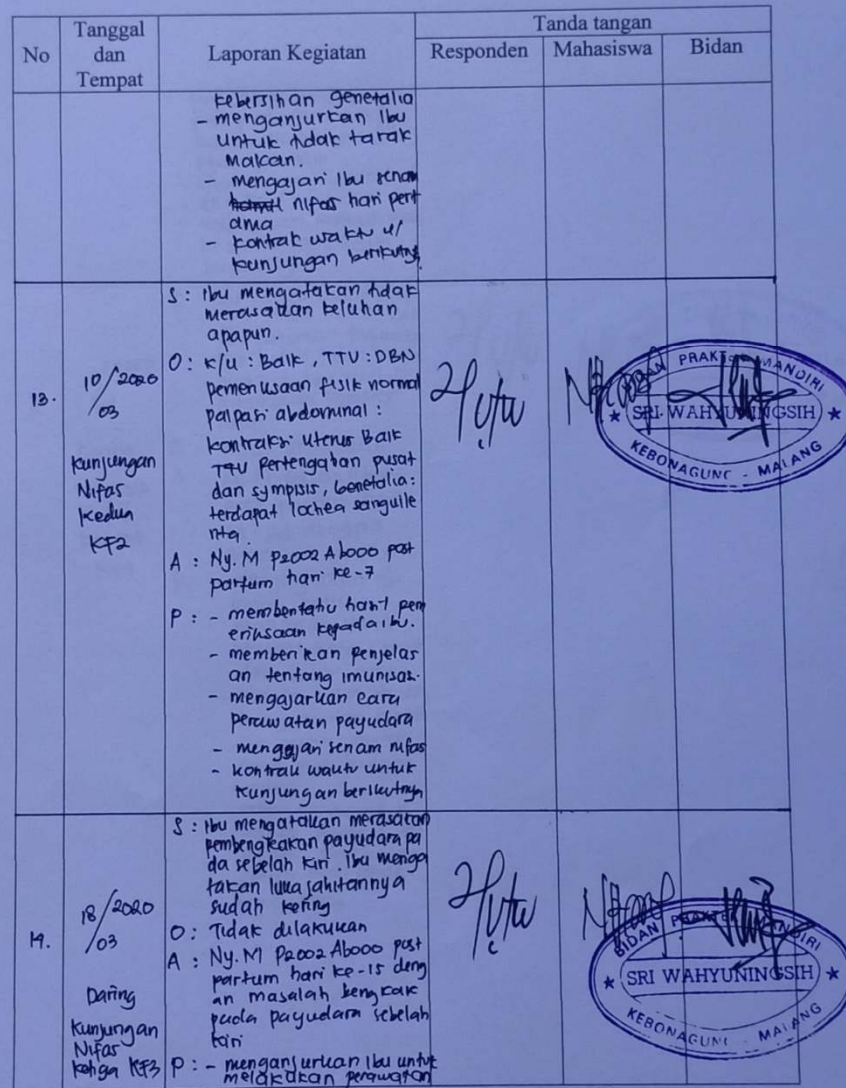 No
Tanggal dan Tempat
Laporan Kegiatan
Tanda tangan
Responden
Mahasiswa
Bidan
kebersihan genetalia
- menganjurkan Ibu
untuk tidak tarak
Makan.
- mengajari Ibu senam
nifas hari pert
ama
- kontrak waktu u/
kunjungan berikutnya.
13.
10/2020
/03
Kunjungan
Nifas
Kedua
KF2
S : Ibu mengatakan tidak
merasakan keluhan
apapun.
O : K/U : Baik , TTV : DBN
pemeriksaan fisik normal
palpasi abdominal :
kontraksi uterus Baik
TFU pertengahan pusat
dan sympisis, Genetalia:
terdapat lochea sanguile
nta.
A : Ny. M P2002 Ab000 post
partum hari ke-7
P : - memberitahu hasil pem
eriksaan kepada ibu.
- memberikan penjelas
an tentang imunisasi.
- mengajarkan cara
perawatan payudara
- mengajari senam nifas
- kontrak waktu untuk
kunjungan berikutnya
BIDAN PRAKTEK MANDIRI
SRI WAHYUNINGSIH
KEBONAGUNG - MALANG
14.
18/2020
/03
Daring
Kunjungan
Nifas
Ketiga KF3
S : Ibu mengatakan merasakan
pembengkakan payudara pa
da sebelah kiri. Ibu menga
takan luka jahitannya
sudah kering
O : Tidak dilakukan
A : Ny. M P2002 Ab000 post
partum hari ke-15 deng
an masalah bengkak
pada payudara sebelah
kiri
P : - menganjurkan Ibu untuk
melakukan perawatan
BIDAN PRAKTEK MANDIRI
SRI WAHYUNINGSIH
KEBONAGUNG - MALANG